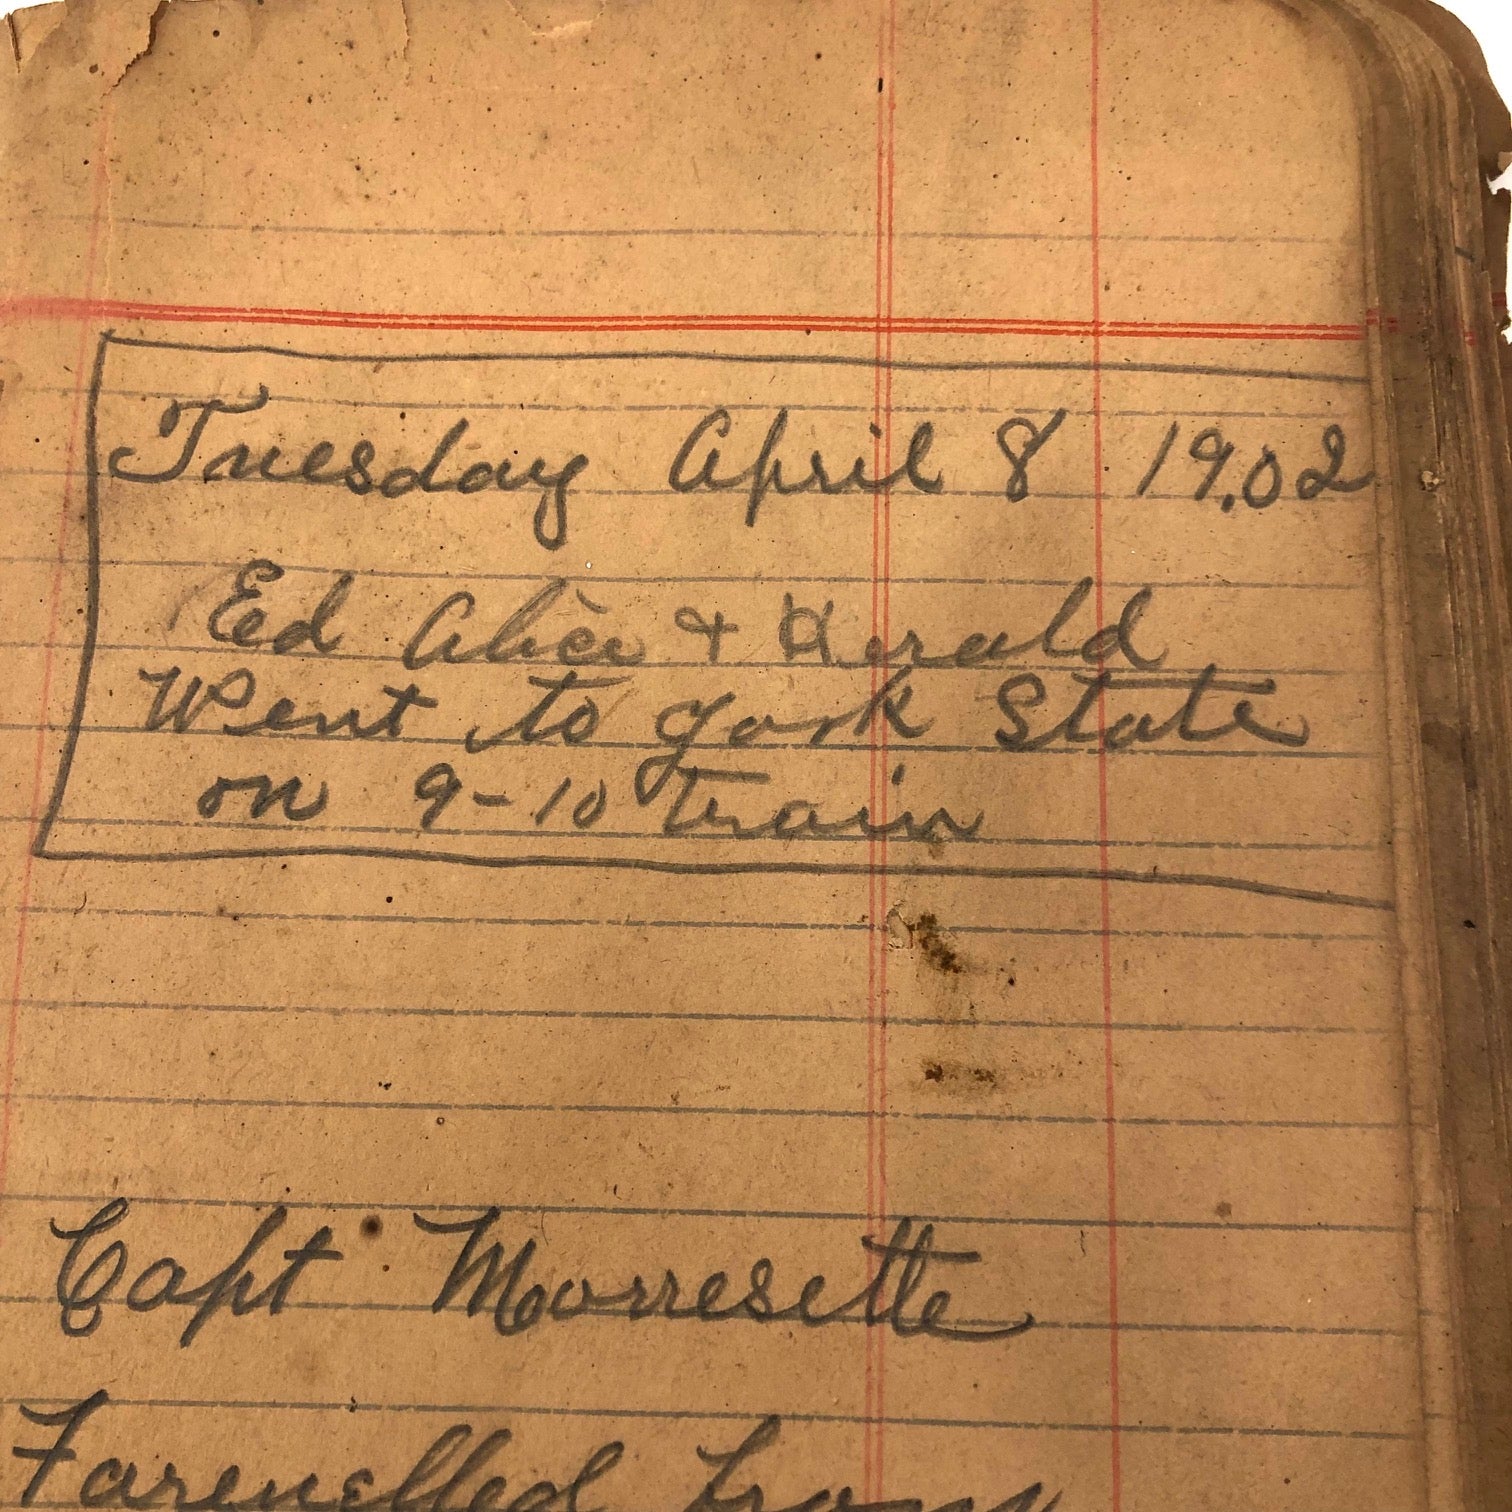 Tuesday April 8 19.02
Ed Alice + Herald
Went to york State
on 9-10 train
Capt Morresette
Farenelled from